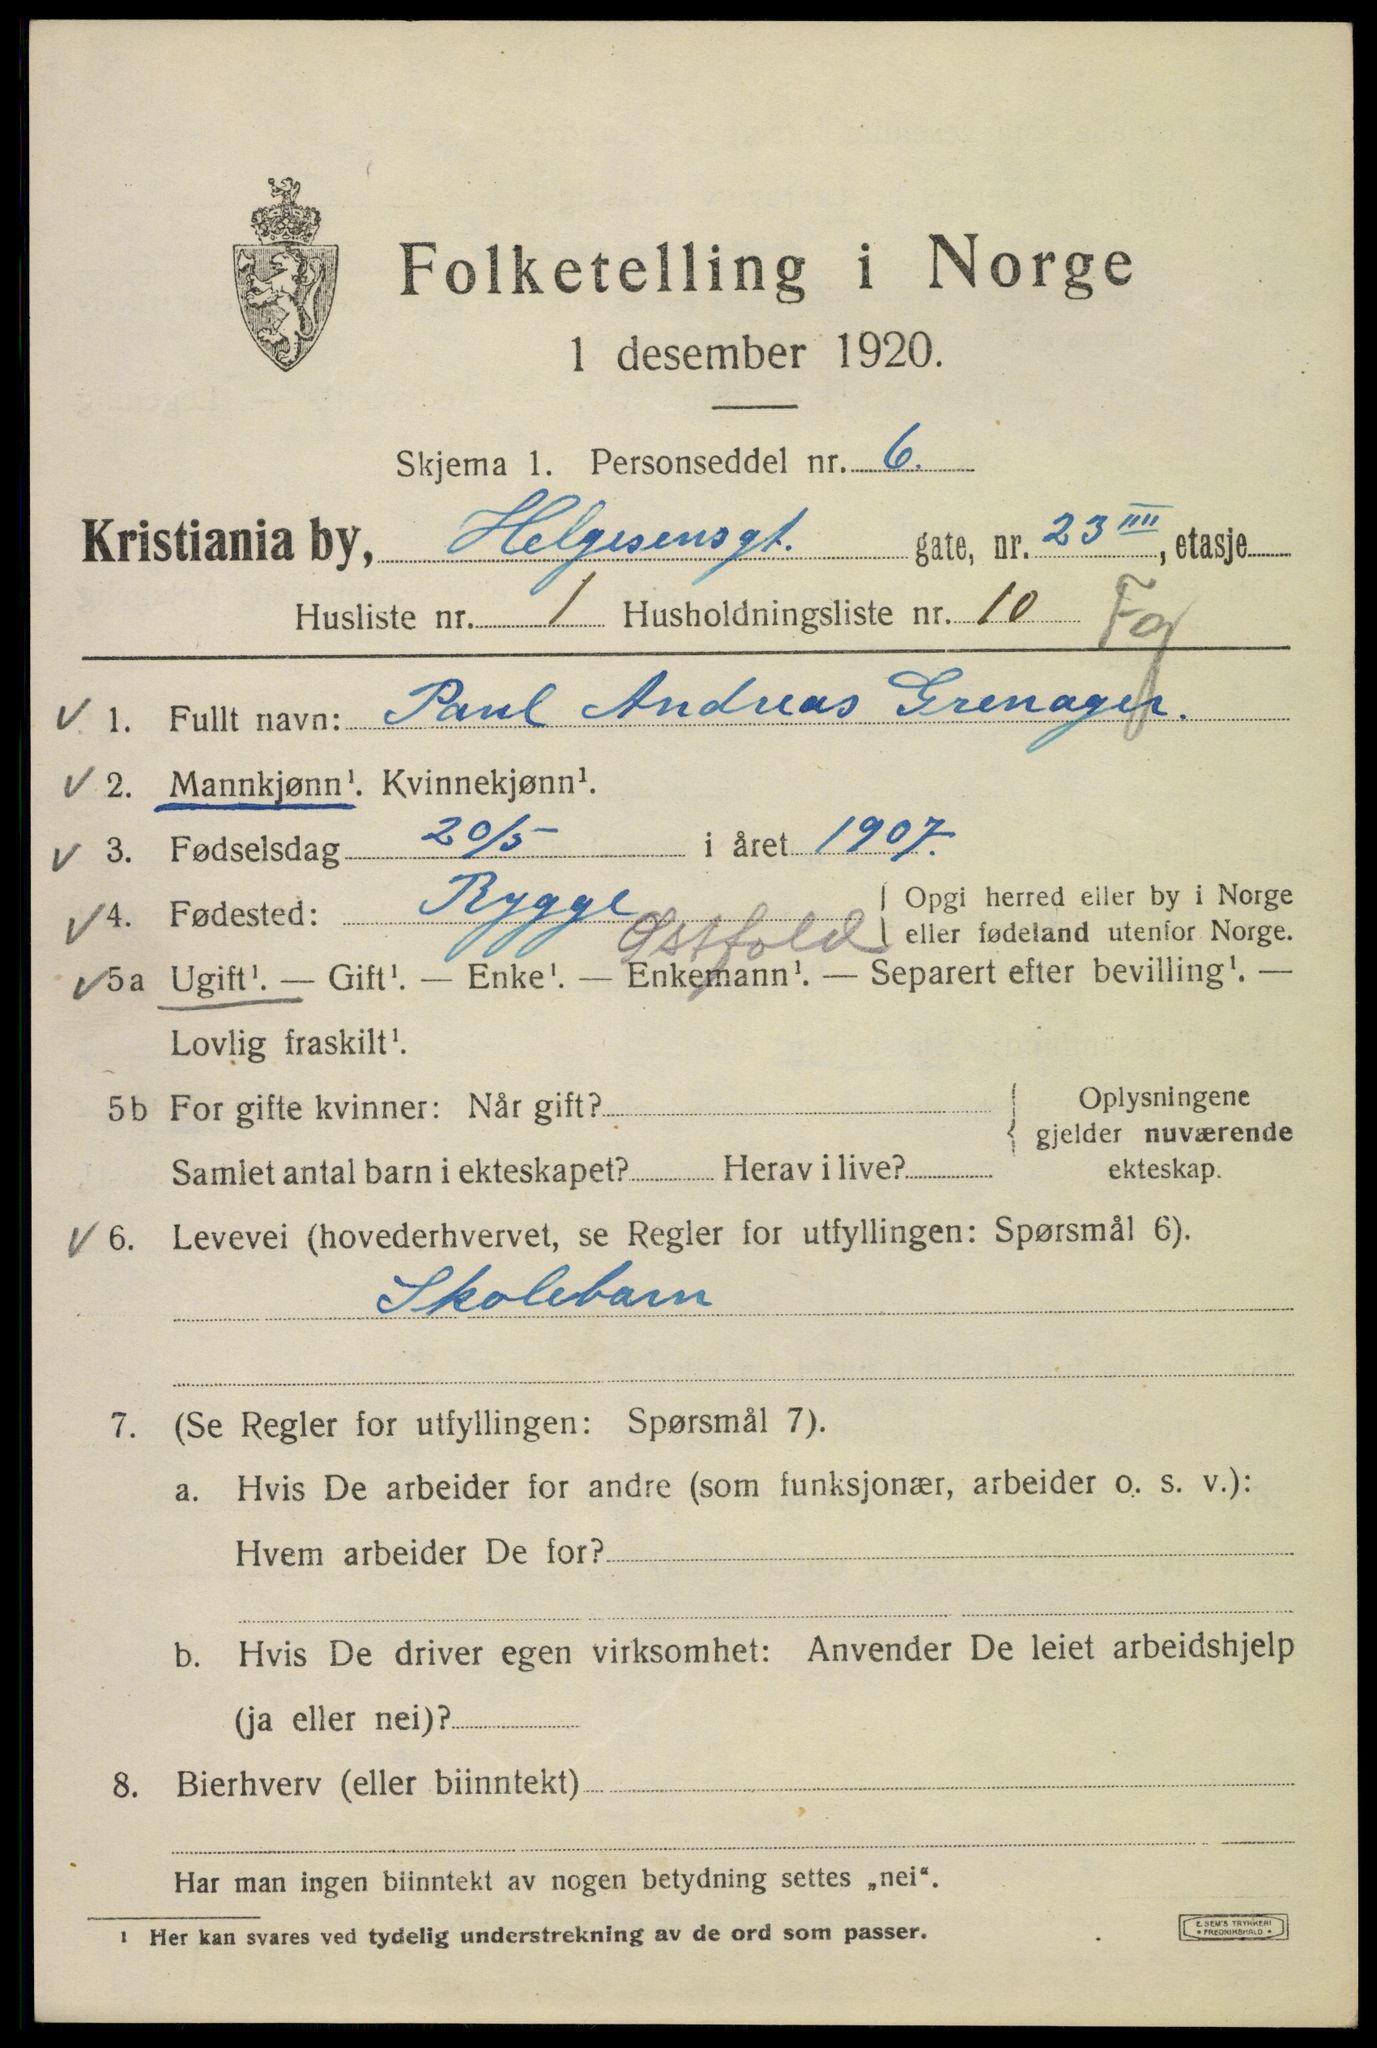 Folketelling i Norge
1 desember 1920.
Skjema 1. Personseddel nr. 6.
Kristiania by, Helgesensgt. gate, nr. 23 IIII, etasje
Husliste nr. 1 Husholdningsliste nr. 10
1. Fullt navn: Paul Andreas Grenager.
2. Mannkjønn¹. Kvinnekjønn¹.
3. Fødselsdag 20/5 i året 1907.
4. Fødested: Rygge { Opgi herred eller by i Norge
Østfold eller fødeland utenfor Norge.
5a Ugift¹. — Gift¹. — Enke¹. — Enkemann¹. — Separert efter bevilling¹. —
Lovlig fraskilt¹.
5b For gifte kvinner: Når gift? Oplysningene
{ gjelder nuværende
Samlet antal barn i ekteskapet? Herav i live? ekteskap.
6. Levevei (hovederhvervet, se Regler for utfyllingen: Spørsmål 6).
Skolebarn
7. (Se Regler for utfyllingen: Spørsmål 7).
a. Hvis De arbeider for andre (som funksjonær, arbeider o. s. v.):
Hvem arbeider De for?
b. Hvis De driver egen virksomhet: Anvender De leiet arbeidshjelp
(ja eller nei)?
8. Bierhverv (eller biinntekt)
Har man ingen biinntekt av nogen betydning settes „nei“.
¹ Her kan svares ved tydelig understrekning av de ord som passer.
E. SEM'S TRYKKERI
* FREDRIKSHALD *